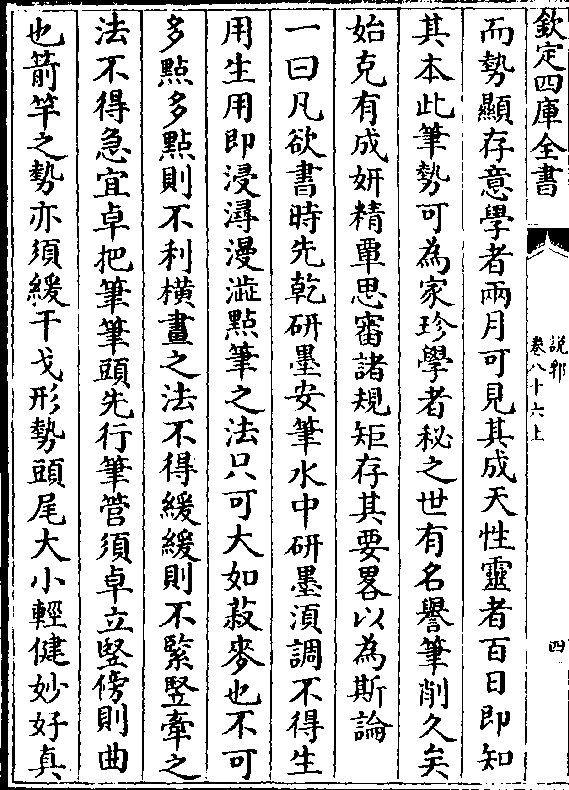 欽定四庫全書
說郛
卷八十六上
四
而勢顯存意學者兩月可見其成天性靈者百日即知
其本此筆勢可為家珍學者秘之世有名譽筆削久矣
始克有成妍精覃思審諸規矩存其要畧以為斯論
一曰凡欲書時先乾研墨安筆水中研墨湏調不得生
用生用即浸潯漫澁點筆之法只可大如菽麥也不可
多點多點則不利橫畫之法不得緩緩則不緊竪牽之
法不得急宜卓把筆筆頭先行筆管須卓立竪傍則曲
也箭竿之勢亦須緩干戈形勢頭尾大小輕健妙好真